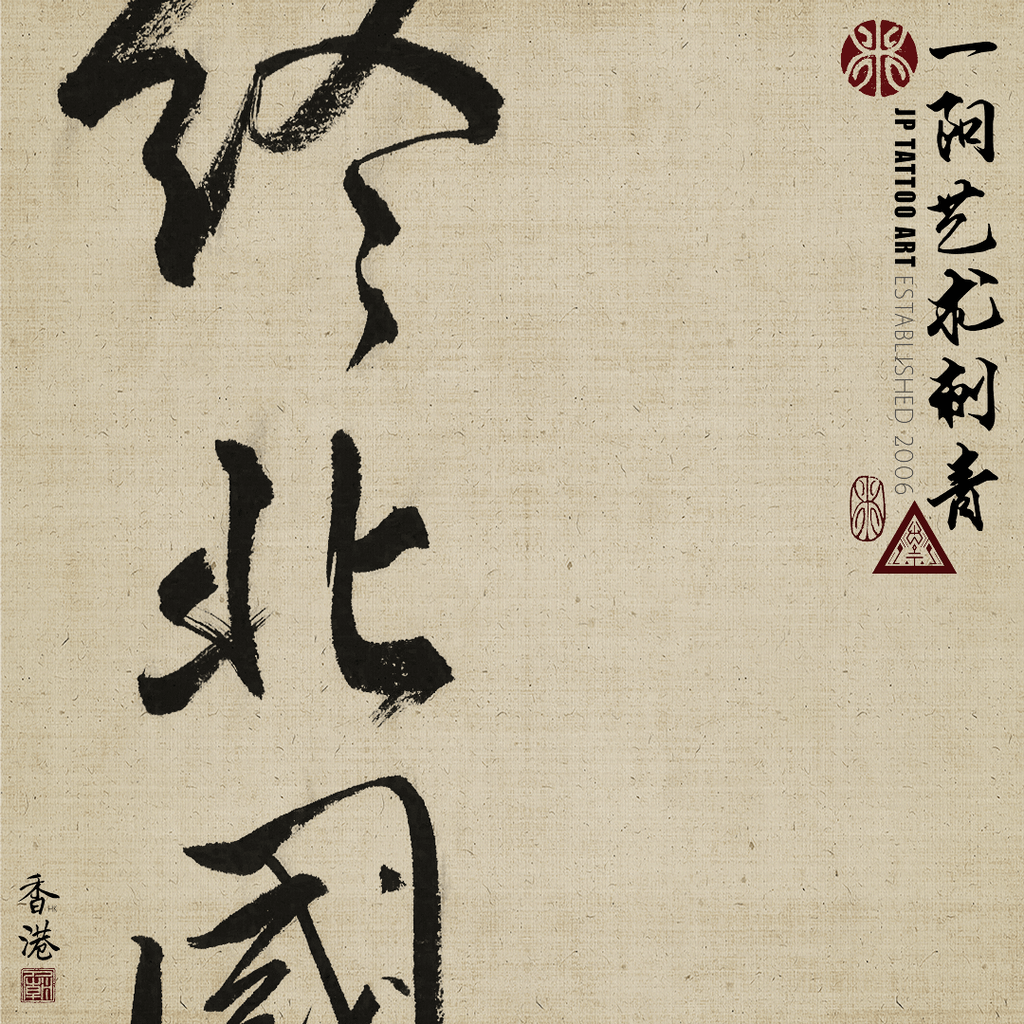 一阳艺术刺青
JP TATTOO ART ESTABLISHED 2006
终北國
香港
HK